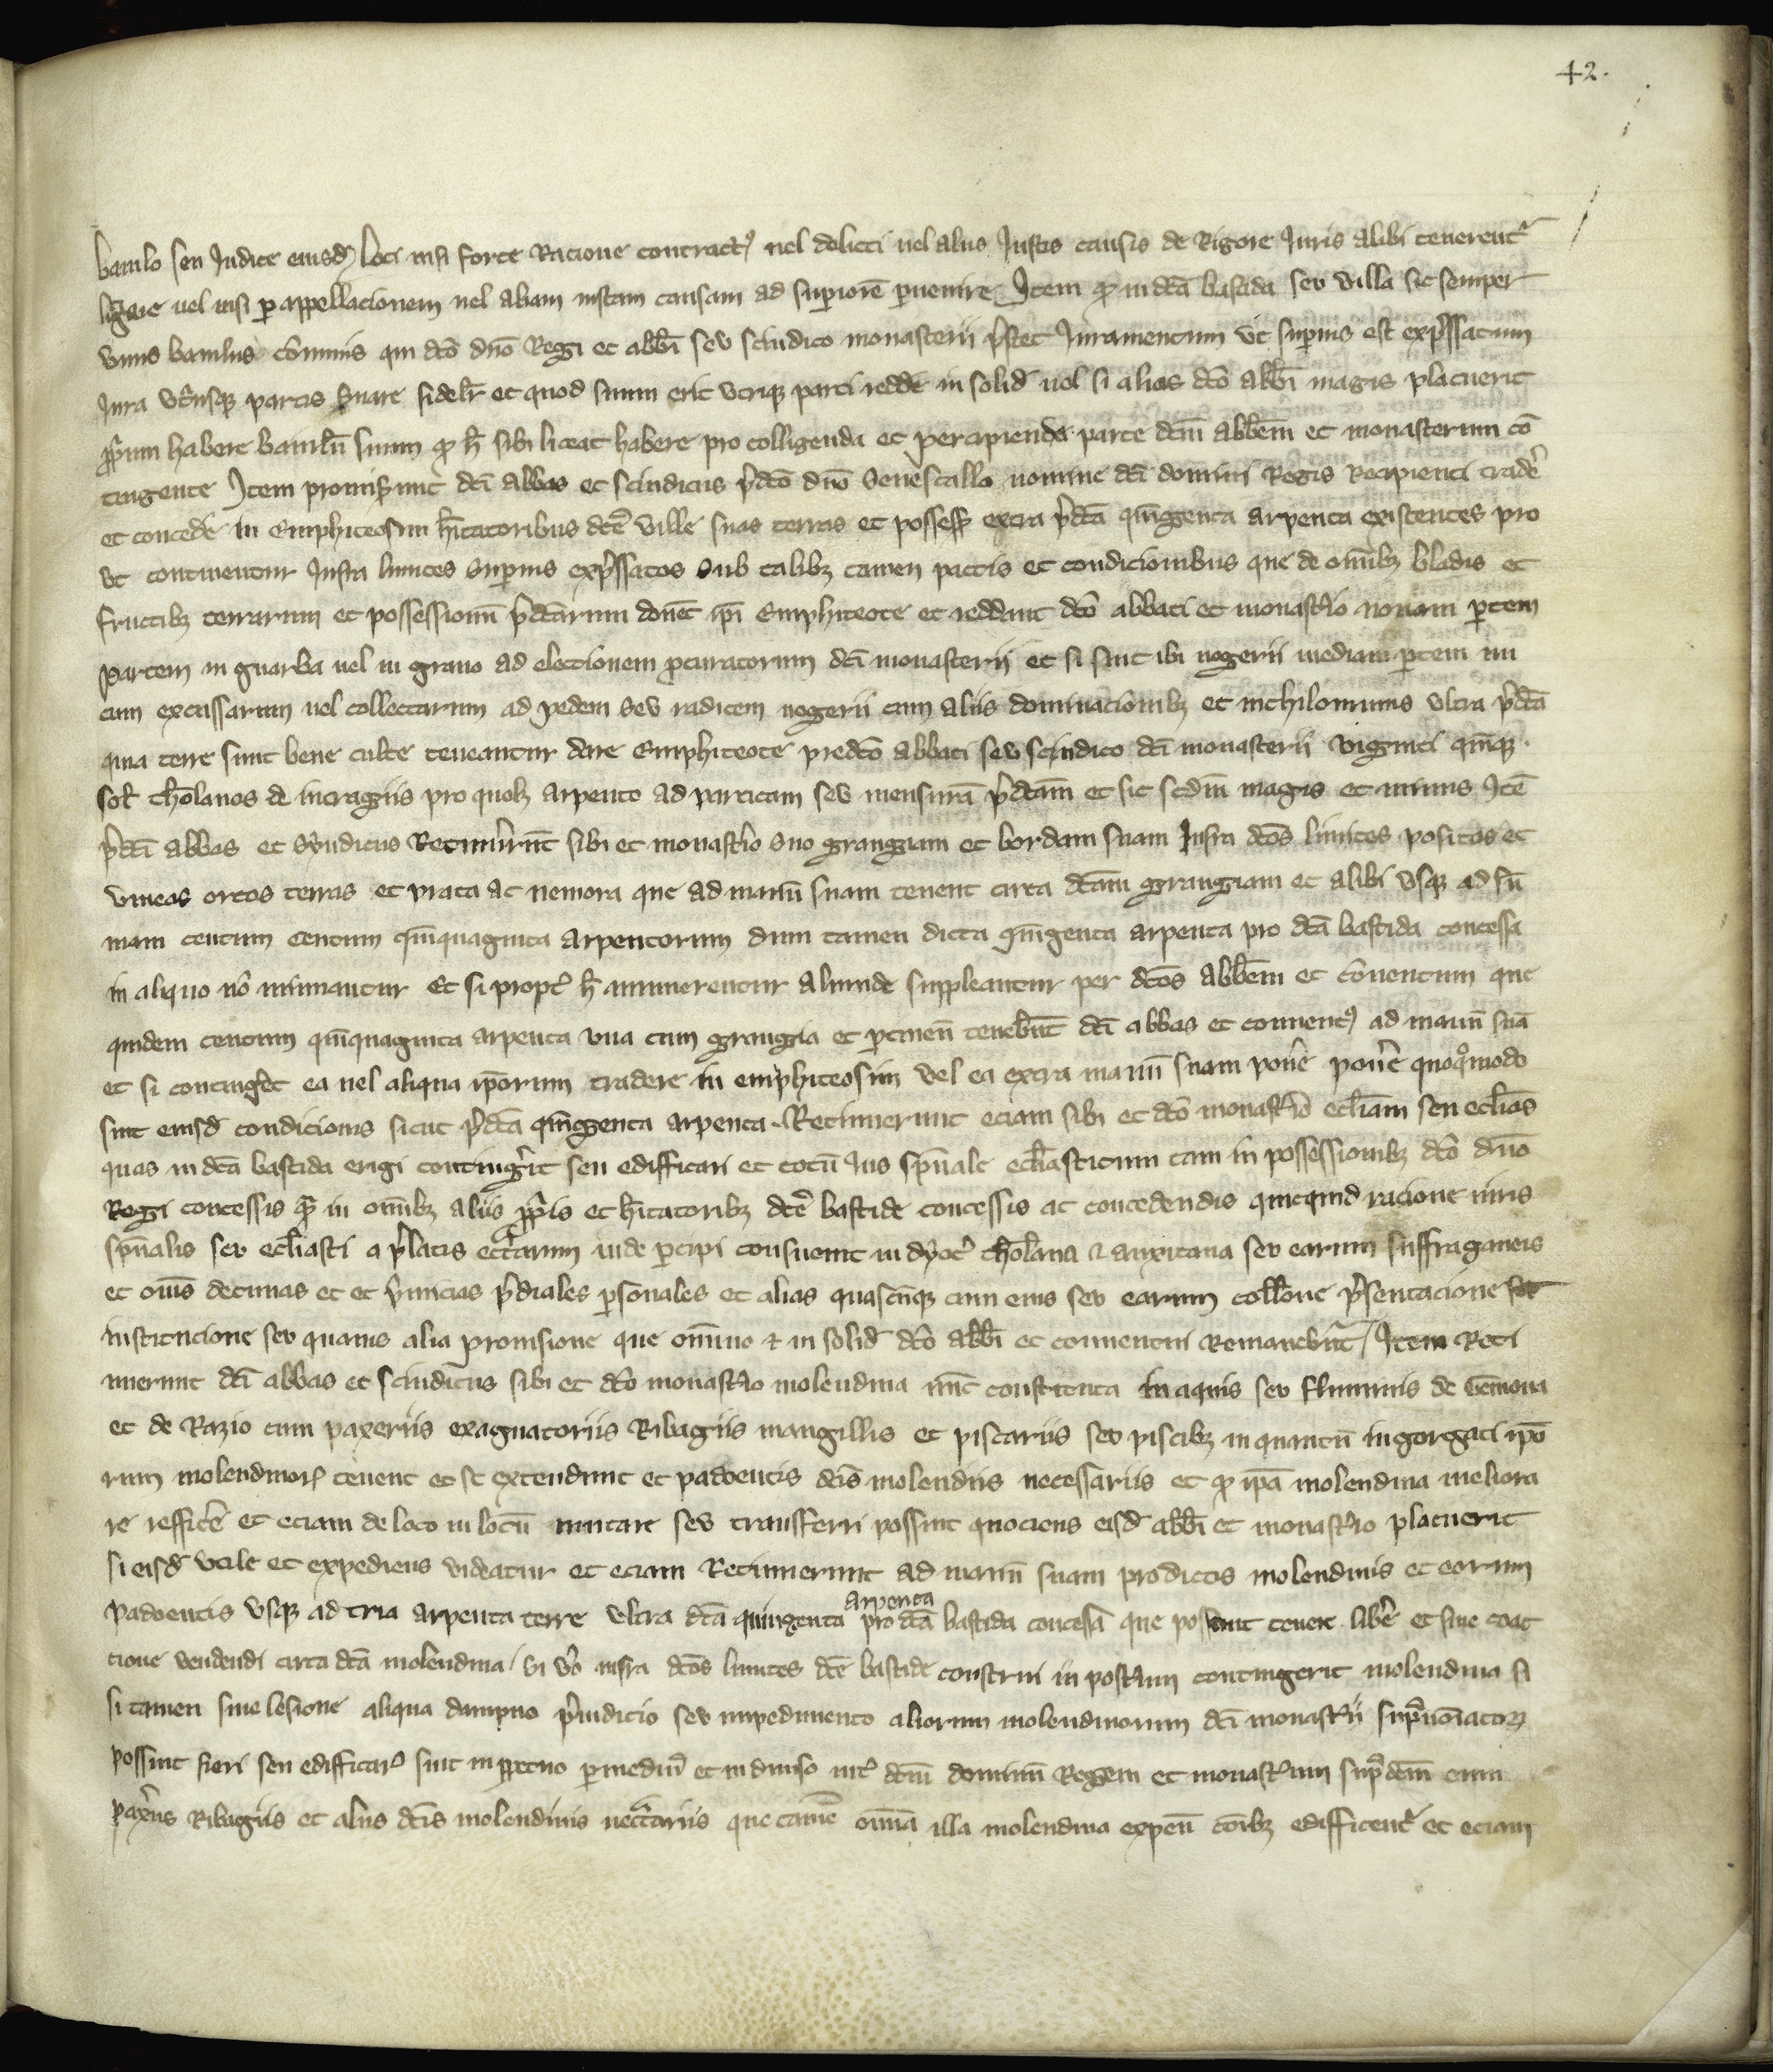 42.
baiulo seu Judice eiusd̄ loci nisi forte Racione contractꝰ uel delicti uel aliis Justis causis de Rigore Juris alibi tenerent᷑
litigare uel nisi p̱ appellacionem uel aliam iustam causam ad sup̱iorē p̱uenire Jtem qͥ in dc̄a bastida seu villa sit semper
vnus baiulus cōmunis qui dc̄o dn̄o Regi et abb̄i seu scindico monasterii p̄stet Juramentum vt sup̱ius est exp̄ssatum
Jura vt̓usqꝫ partis S̓uare fidelr̄ et quod suum erit vtriqꝫ parti redde̓ in solid̄ uel si alias dc̄o abb̄i magis placuerit
p̱p̓um habere baiulū suum qͥ h̄ sibi liceat habere pro colligenda et percipienda parte dc̄m abb̄em et monasterium cō
tingente Jtem promis̓unt dc̄i abbas et scindicus p̄dc̄o dn̄o Senescallo nomine dc̄i domini Regis Recipienti trade̓
et concede̓ in Emphiteosim h̄itatoribus dc̄e ville suas terras et possess̄ extra p̄dc̄a qīngenta arpenta existentes pro
vt continentur Infra limites Sup̱ius exp̄ssatos Sub talibꝫ tamen pactis et condicionibus que de om̄ibꝫ bladis et
fructibꝫ terrarum et possessionū p̄dc̄arum donēt ip̄i Emphiteote et reddant dc̄o abbati et monast̓io nonam p̱tem
Partem in guarba uel in grano ad electionem p̱curatorum dc̄i monasterii et si sint ibi nogerii mediam p̱tem nu
cum excussarum uel collectarum ad pedem seu radicem nogerii cum aliis dominacionibꝫ et nichilominus vltra p̄dc̄a
quia terre sunt bene culte teneantur dare Emphiteote predc̄o abbati seu scindico dc̄i monasterii viginti qīnqꝫ
sol̄ thol̄anos de intragiis pro quolꝫ arpento ad particam seu mensurā p̄dc̄am et sic scd̄m magis et minus Jtē
p̄dc̄i abbas et Syndicus Retinu̓unt sibi et monast̓io suo grangiam et bordam suam Infra dc̄os limites positas et
vineas ortos terras et prata ac nemora que ad manū suam tenent circa dc̄am grangiam et alibi vsqꝫ ad sū
mam centum centum qīnquaginta arpentorum dum tamen dicta qīngenta arpenta pro dc̄a bastida concessa
in aliquo nō minuantur Et si propt̓ h̄ minuerentur aliunde suppleantur per dc̄os abb̄em et cōuentum que
quidem centum qīnquaginta arpenta vna cum grangia et p̱tinen̄ teneb̄unt dc̄i abbas et conuentꝰ ad manū suā
et si conting̓et ea uel aliqua ip̄orum tradere in emphiteosim vel ea extra manū suam pone̓ pone̓ quoqͦmodo
sint eiusd̄ condicionis sicut p̄dc̄a qīngenta arpenta. Retinuerunt eciam sibi et dc̄o monast̓io eccl̄iam seu eccl̄ias
quas in dc̄a bastida erigi conting̓it seu edifficari et totū Jus sp̄uale eccl̄iasticum tam in possessionibꝫ dc̄o dn̄o
Regi concessis qͣ in om̄ibꝫ aliis p̱p̓is et h̄itatoribꝫ dc̄e bastide concessis ac concedendis quicquid racione iuris
sp̄ualis seu eccl̄iasti a p̄latis ecc̓arum inde p̱cipi consueuit in dyoc̓ thol̄ana & auxitana seu earum suffraganeis
et om̄s decimas et et p̓micias p̄diales p̱sonales et alias quascūqꝫ cum eius seu earum coll̄one p̄sentacione seu
institucione seu quauis alia prouisione que om̄ino & in solid̄ dc̄o abb̄i et conuentui Remaneb̄unt Jtem Reti
nuerunt dc̄i abbas et scindicus sibi et dc̄o monast̓io molendina nūc constituta in aquis seu fluminis de Gēmona
et de Razio cum paxeriis exaguatoriis Ribagiis mangillis et piscariis seu piscibꝫ in quantū in gorgati ip̄o
rum molendinorꝫ tenent et se extendunt et padoentis dc̄is molendiis necessariis et qͥ ip̄a molendina meliora
re reffice̓ et eciam de loco in locū mutare seu transferri possint quociens eisd̄ abb̄i et monast̓io placuerit
si eisd̄ vtile et expediens videatur et eciam Retinuerunt ad manū suam prodictos molendinis et eorum
Padoentis vsqꝫ ad tria arpenta terre vltra dc̄a quingenta arpenta pro dc̄a bastida concessa que possunt tenere libe̓ et sine coac
tione vendendi circa dc̄a molendina Si v̓o infra dc̄os limites dc̄e bastide construi in post̓um contingerit molendina si
si tamen sine lesione aliqua dampno p̄iudicio seu impedimento aliorum molendinorum dc̄i monast̓ii sup̱noīatorꝫ
possint fieri seu edifficar̓ sint in p̱petuo p̱ mediū et indiuiso int̓ dc̄m dominū Regem et monast̓ium sup̱dc̄m cum
paxe̓iis Ribagiis et aliis dc̄is molendinis necc̓ariis que tamē om̄ia illa molendina expen̄ cōibꝫ edifficent᷑ et eciam